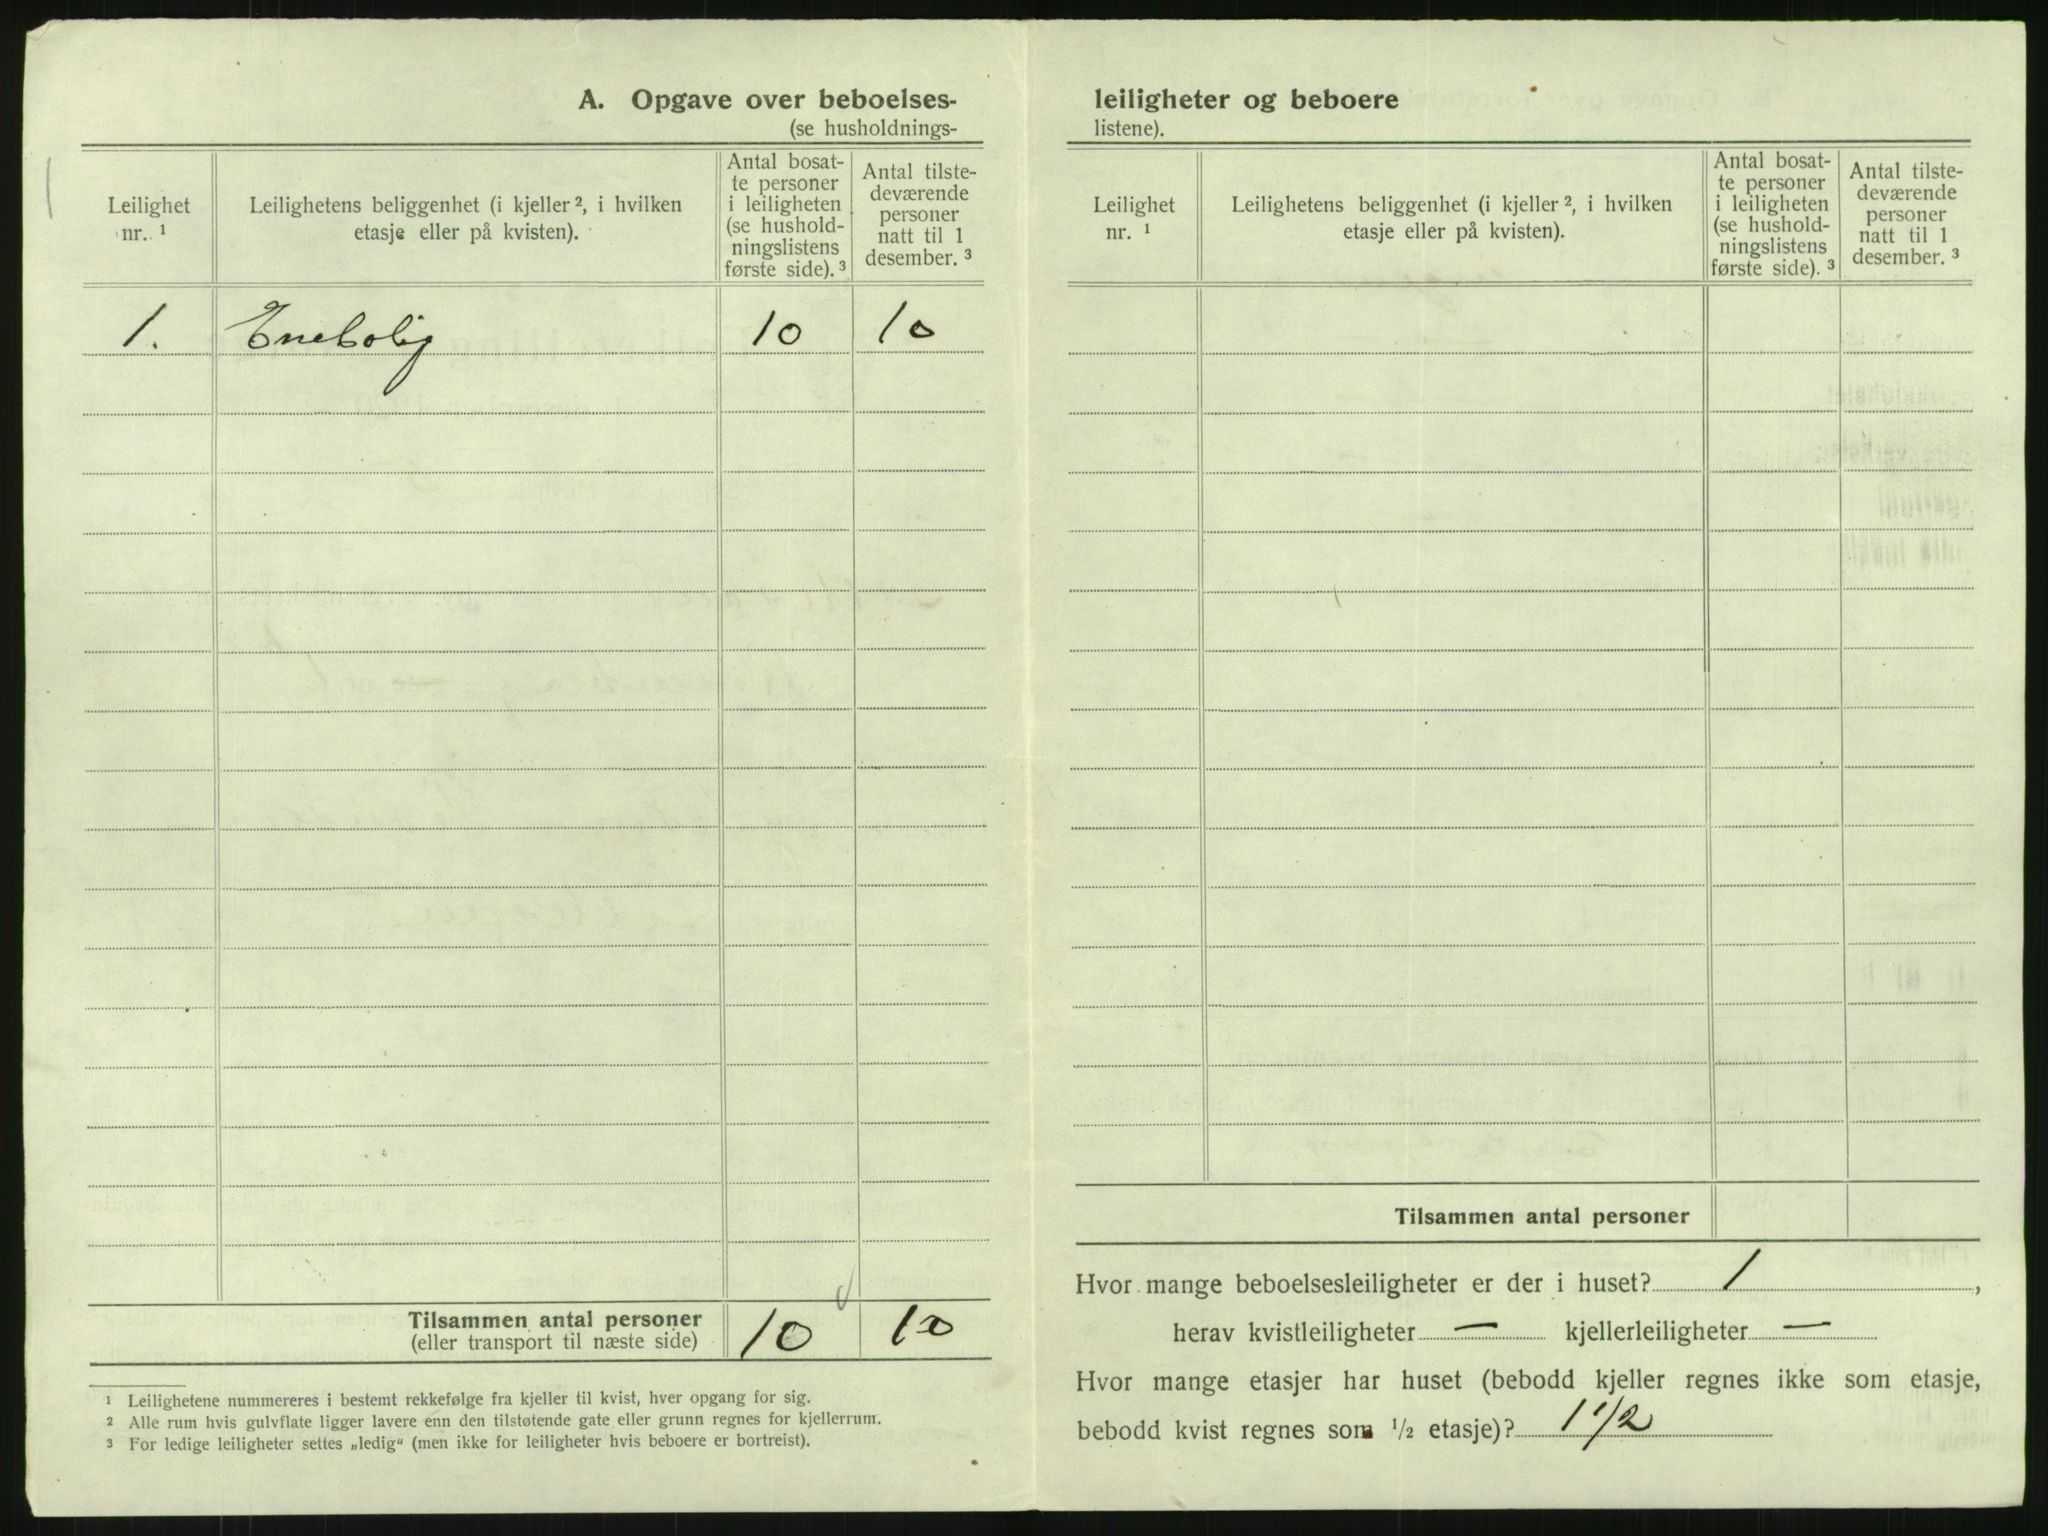 A. Opgave over beboelses-
(se husholdnings-
Leilighet
nr. ¹
Leilighetens beliggenhet (i kjeller ², i hvilken
etasje eller på kvisten).
Antal bosat-
te personer
i leiligheten
(se hushold-
ningslistens
første side). ³
Antal tilste-
deværende
personer
natt til 1
desember. ³
1. Enebolig 10 10
Tilsammen antal personer
(eller transport til næste side)
10 10
¹ Leilighetene nummereres i bestemt rekkefølge fra kjeller til kvist, hver opgang for sig.
² Alle rum hvis gulvflate ligger lavere enn den tilstøtende gate eller grunn regnes for kjellerrum.
³ For ledige leiligheter settes „ledig“ (men ikke for leiligheter hvis beboere er bortreist).
leiligheter og beboere
listene).
Leilighet
nr. ¹
Leilighetens beliggenhet (i kjeller ², i hvilken
etasje eller på kvisten).
Antal bosat-
te personer
i leiligheten
(se hushold-
ningslistens
første side). ³
Antal tilste-
deværende
personer
natt til 1
desember. ³
Tilsammen antal personer
Hvor mange beboelsesleiligheter er der i huset? 1 ,
herav kvistleiligheter — kjellerleiligheter —
Hvor mange etasjer har huset (bebodd kjeller regnes ikke som etasje,
bebodd kvist regnes som ½ etasje)? 1 1/2